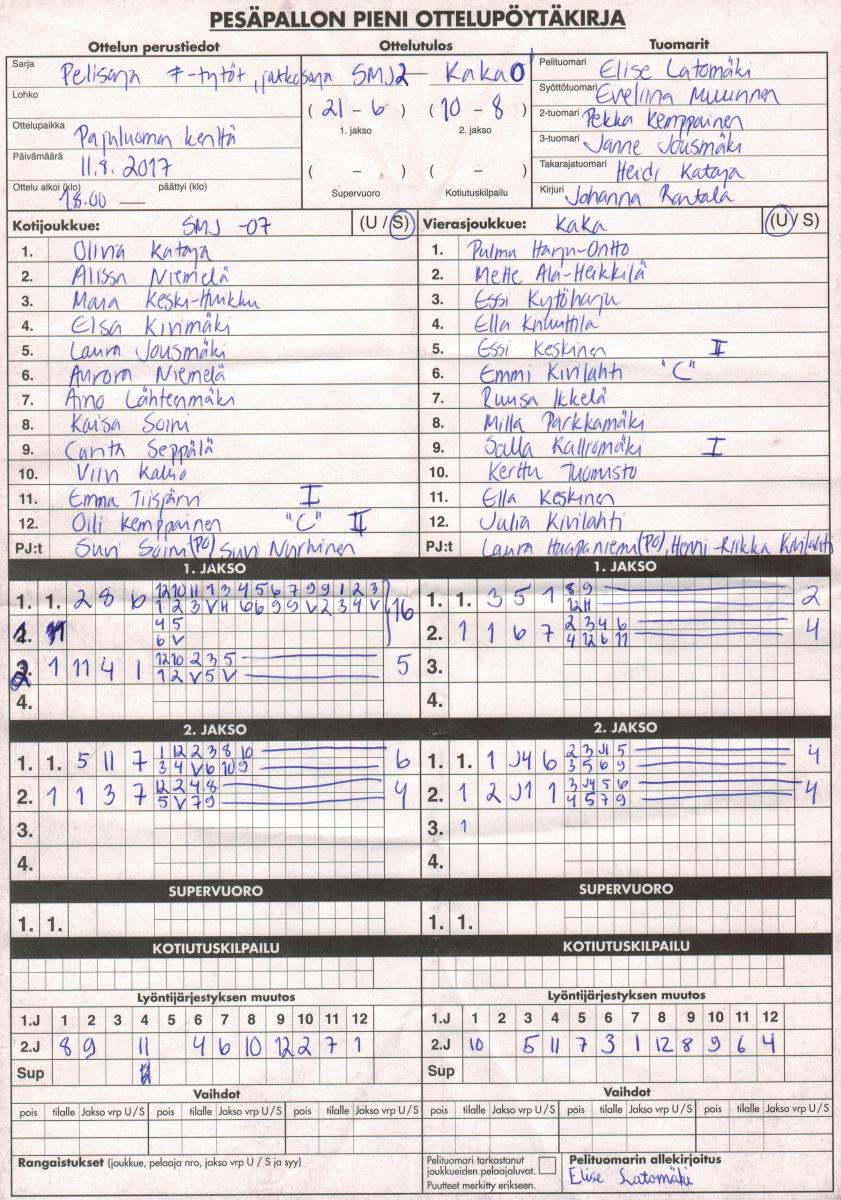 PESÄPALLON PIENI OTTELUPÖYTÄKIRJA
Ottelun perustiedot Ottelutulos Tuomarit
Sarja Pelisarja F-tytöt, jatkosarja SMJ2 — KaKa0
Pelituomari Elise Latomäki
Lohko
Syöttötuomari Eveliina Muurinen
( 21 - 6 ) ( 10 - 8 )
2-tuomari Pekka Kemppainen
Ottelupaikka Pajuluoman kenttä
1. jakso 2. jakso
3-tuomari Janne Jousmäki
Päivämäärä 11.8. 2017
( – ) ( – )
Takarajatuomari Heidi Kataja
Ottelu alkoi (klo) 18.00 — päättyi (klo)
Supervuoro Kotiutuskilpailu
Kirjuri Johanna Rantala
Kotijoukkue: SMJ -07 (U / S) Vierasjoukkue: KaKa (U / S)
1. Olivia Kataja 1. Pulma Harju-Ontto
2. Alissa Niemelä 2. Mette Ala-Heikkilä
3. Maia Keski-Huikku 3. Essi Kytöharju
4. Elsa Kivimäki 4. Ella Knuuttila
5. Laura Jousmäki 5. Essi Keskinen II
6. Aurora Niemelä 6. Emmi Kivilahti "C"
7. Aino Lähtenmäki 7. Ruusa Ikkelä
8. Kaisa Soini 8. Milla Parkkamäki
9. Carita Seppälä 9. Salla Kallromäki I
10. Viivi Kallio 10. Kerttu Tuomisto
11. Emma Tiisjärvi I 11. Ella Keskinen
12. Oili Kemppainen "C" II 12. Julia Kivilahti
PJ:t Suvi Soini (PO), Suvi Nyrhinen PJ:t Laura Haapaniemi (PO), Henni-Riikka Kivilahti
1. JAKSO 1. JAKSO
12 10 11 1 3 4 5 6 7 9 9 1 2 3 8 9
1. 1. 2 8 6 16 1. 1. 3 5 1 2
1 2 3 V H 6 6 9 9 V 2 3 4 V 12 H
4 5 2 3 4 6
2. 2. 1 1 6 7 4
6 V 4 12 6 11
12 10 2 3 5
2 1 11 4 1 5 3.
1 2 V 5 V
4. 4.
2. JAKSO 2. JAKSO
1 12 2 3 8 10 2 3 J1 5
1. 1. 5 11 7 6 1. 1. 1 J4 6 4
3 4 V 6 10 9 3 5 6 9
12 2 4 8 3 J4 5 6
2. 1 1 3 7 4 2. 1 2 J1 1 4
5 V 7 9 4 5 7 9
3. 3. 1
4. 4.
SUPERVUORO SUPERVUORO
1. 1. 1. 1.
KOTIUTUSKILPAILU KOTIUTUSKILPAILU
Lyöntijärjestyksen muutos Lyöntijärjestyksen muutos
1.J 1 2 3 4 5 6 7 8 9 10 11 12 1.J 1 2 3 4 5 6 7 8 9 10 11 12
2.J 8 9 11 4 6 10 12 2 7 1 2.J 10 5 11 7 3 1 12 8 9 6 4
Sup Sup
Vaihdot Vaihdot
pois tilalle Jakso vrp U / S pois tilalle Jakso vrp U / S pois tilalle Jakso vrp U / S pois tilalle Jakso vrp U / S pois tilalle Jakso vrp U / S pois tilalle Jakso vrp U / S
Rangaistukset (joukkue, pelaaja nro, jakso vrp U / S ja syy)
Pelituomari tarkastanut
joukkueiden pelaajaluvat.
Puutteet merkitty erikseen.
Pelituomarin allekirjoitus
Elise Latomäki